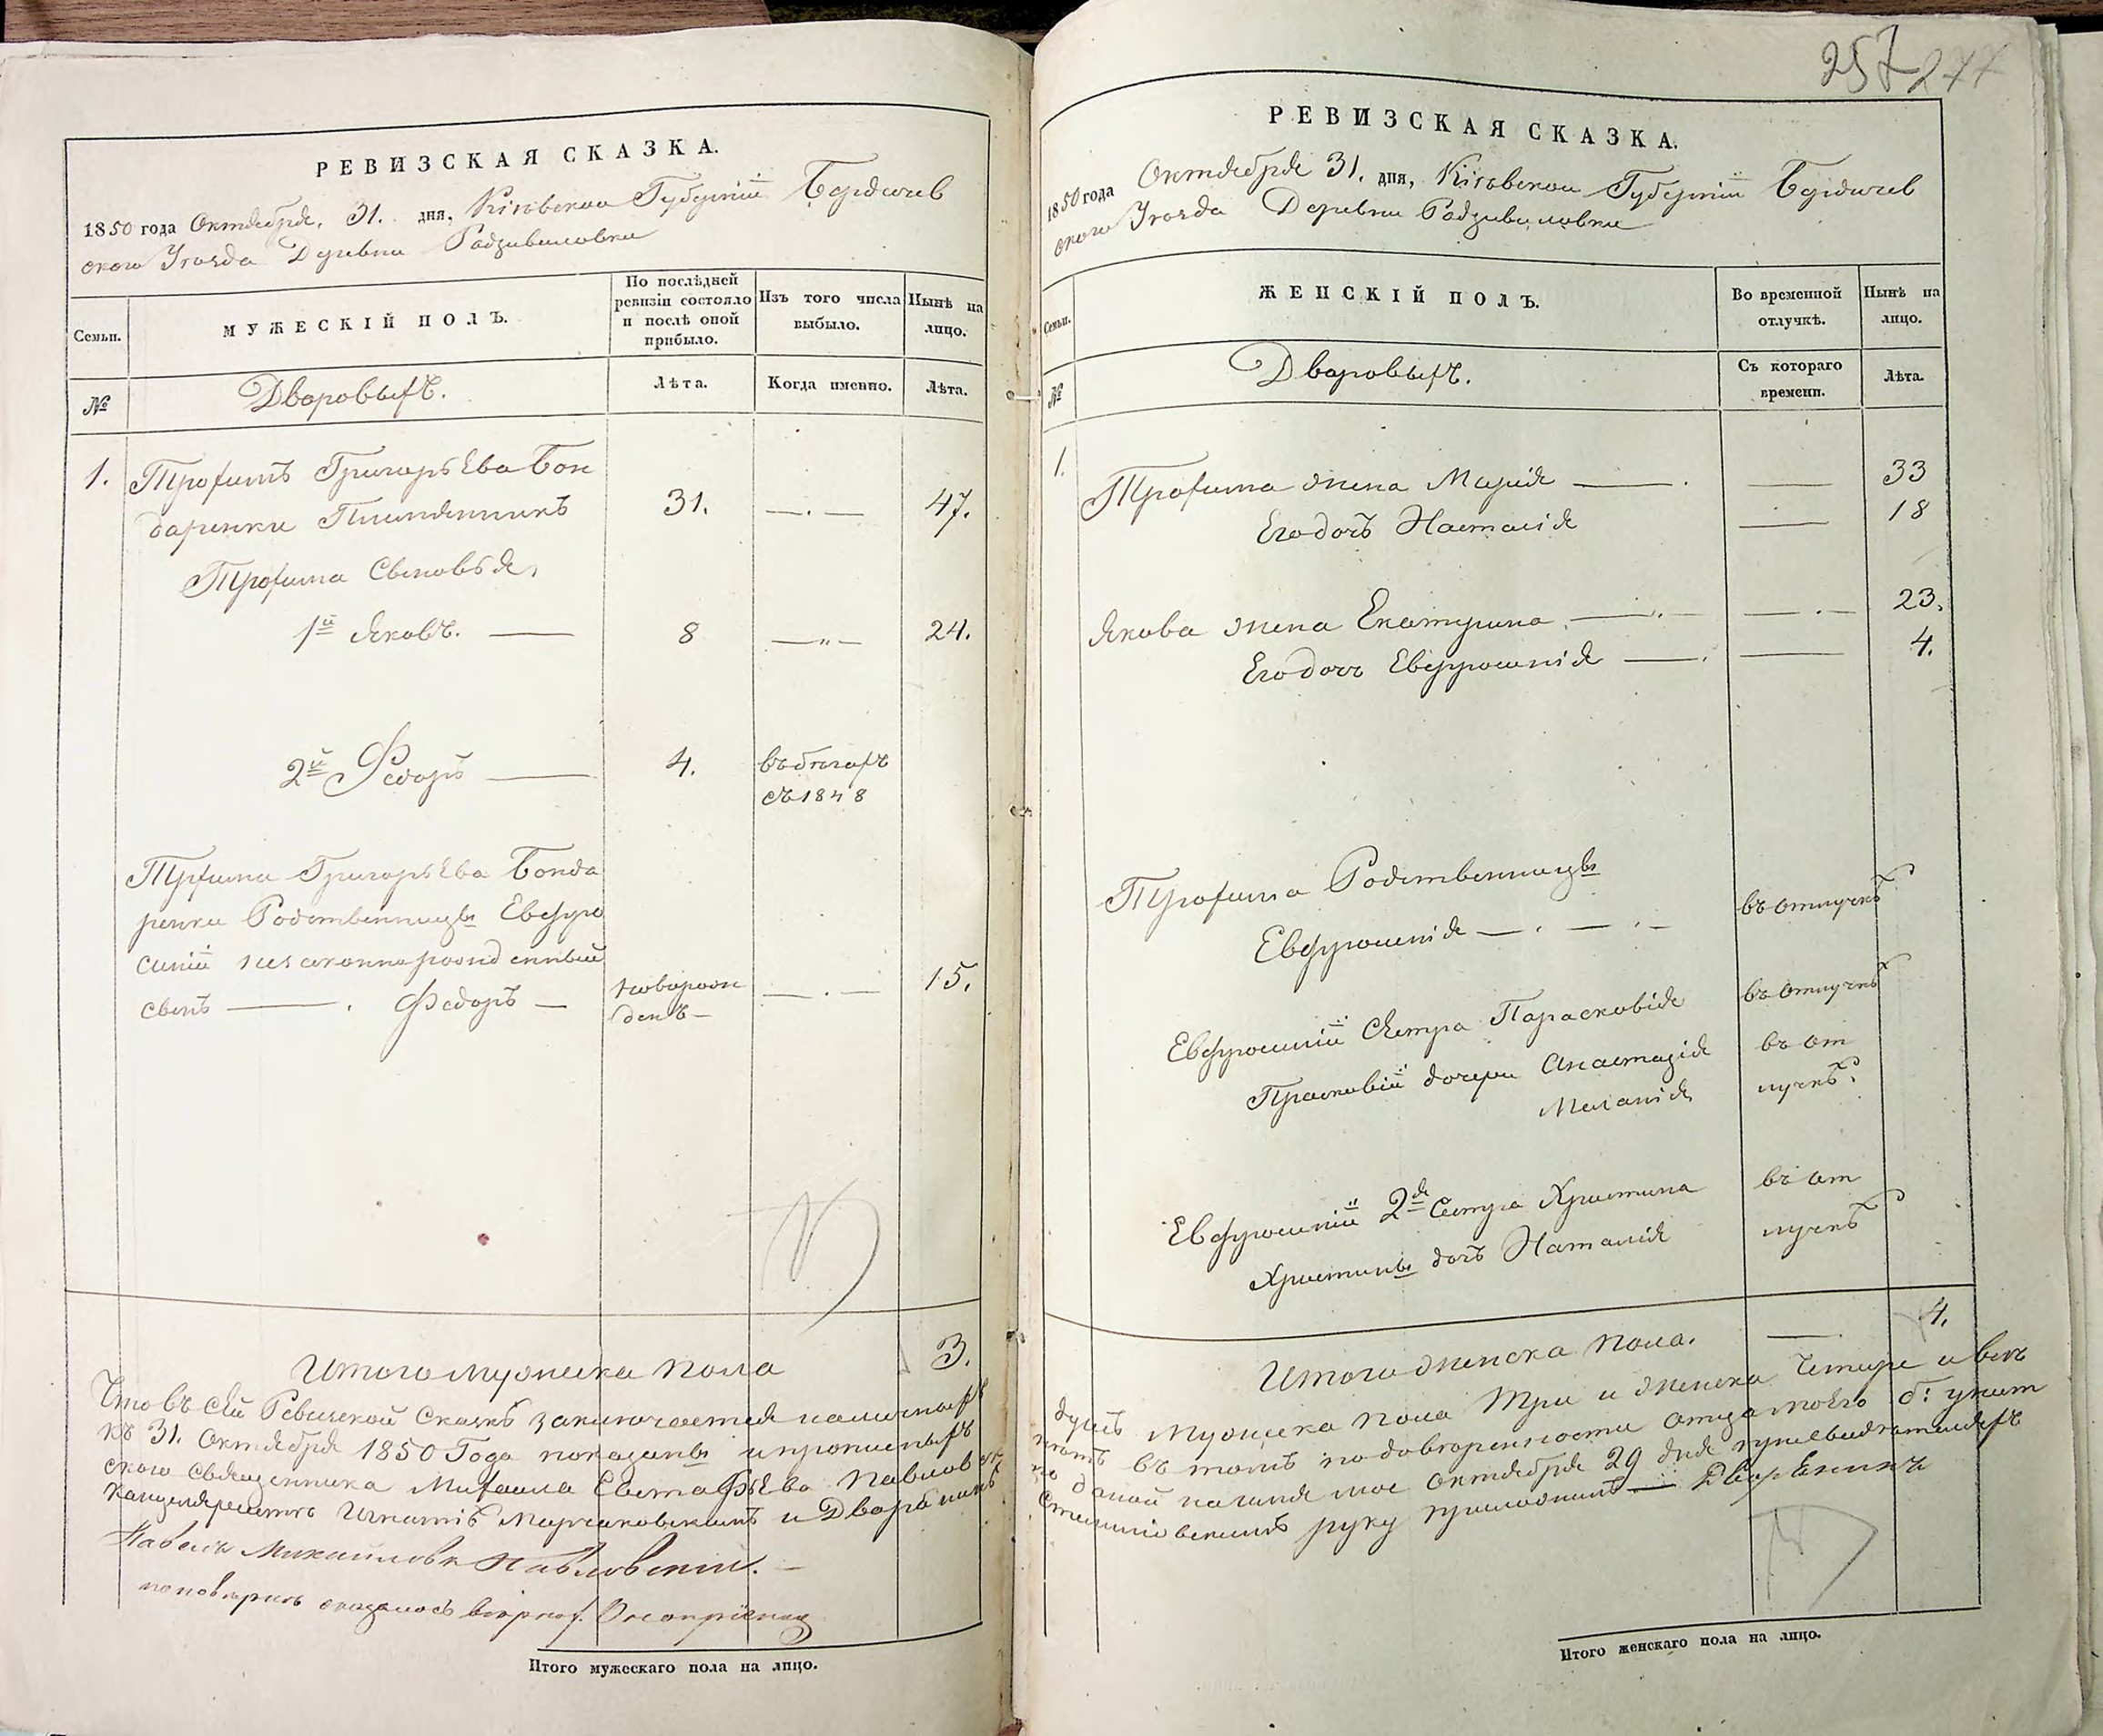 257 277
РЕВИЗСКАЯ СКАЗКА.
1850 года Октября. 31. дня, Кіевской Губерніи Бердичев
ского Уезда Деревни Радзивиловки
Семьи.
МУЖЕСКІЙ ПОЛЪ.
По послѣдней
ревизіи состояло
и послѣ оной
прибыло.
Изъ того числа
выбыло.
Нынѣ на
лицо.
№
Дворовыхъ.
Лѣта.
Когда именно.
Лѣта.
1. Трофимъ Григорьева Бон
даренки Племянникъ 31. 47.
Трофима Сыновья,
1й Яковъ. 8 24.
2й Федоръ 4. въ бѣгахъ
съ 1848
Трфима Григорьева Бонда
ренки Родственницы Евфро
синіи незаконнорожденный
сынъ Федоръ новорож 15.
денъ
Итого мужеска пола 3.
Что въ сей Ревизской Сказкѣ заключается
къ 31. Октября 1850 Года показаны и прописныхъ
ского Священника Михаила Евстафьева Павловск
Канцеляристъ и Дворянинъ
Павелъ Михайловъ Павловскій.
по повѣркѣ оказалось
Итого мужескаго пола на лицо.
РЕВИЗСКАЯ СКАЗКА.
1850 года Октября 31. дня, Кіевской Губерніи Бердичев
ского Уезда Деревни Радзивиловки
Семьи.
ЖЕНСКІЙ ПОЛЪ.
Во временной
отлучкѣ.
Нынѣ на
лицо.
№
Дворовыхъ.
Съ котораго
времени.
Лѣта.
1. Трофима жена Марія 33
Его дочъ Наталія 18
Якова жена Екатерина 23.
Его дочъ Евфросинія 4.
Трофима Родственницы
Евфросинія въ отлучкѣ
Евфросиніи Сестра Парасковія въ отлучкѣ
Прасковіи дочери Анастазія въ от
Меланія лучкѣ.
Евфросиніи 2я Сестра Христина въ от
Христины дочъ Наталія лучкѣ
Итого женска пола. 4.
душъ мужеска пола три и женска четыре и
въ томъ по доверенности
Октября 29 дня
руку приложилъ Дворянинъ
Итого женскаго пола на лицо.